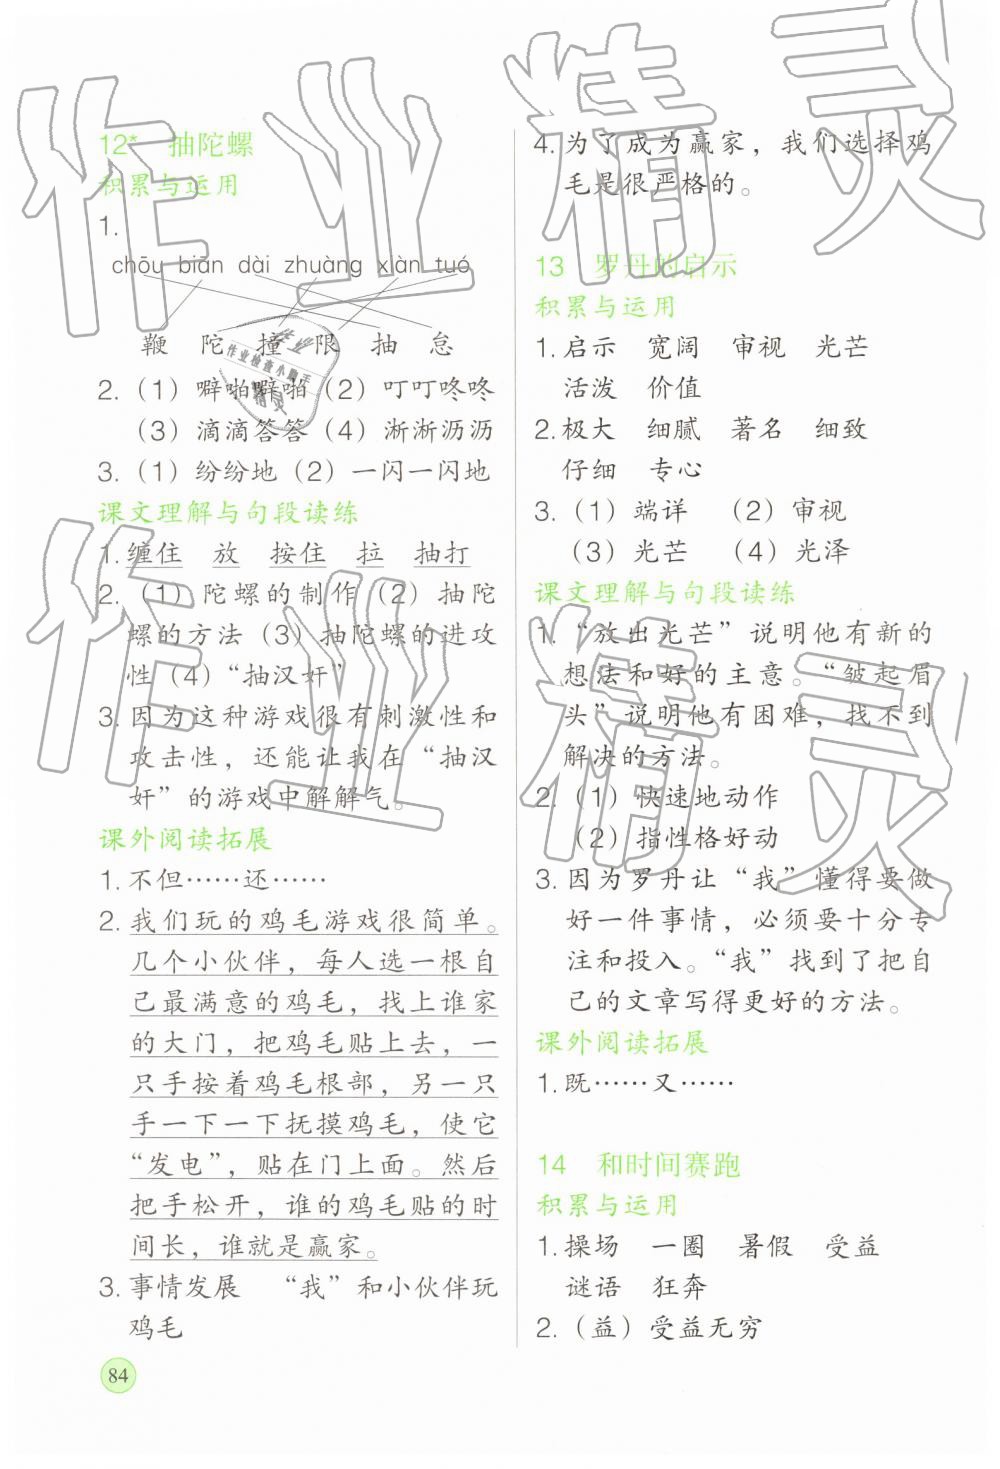 12* 抽陀螺
积累与运用
1.
chōu biān dài zhuàng xiàn tuó
鞭 陀 撞 限 抽 怠
2.（1）噼啪噼啪（2）叮叮咚咚
（3）滴滴答答（4）淅淅沥沥
3.（1）纷纷地（2）一闪一闪地
课文理解与句段读练
1.缠住 放 按住 拉 抽打
2.（1）陀螺的制作（2）抽陀
螺的方法（3）抽陀螺的进攻
性（4）“抽汉奸”
3. 因为这种游戏很有刺激性和
攻击性，还能让我在“抽汉
奸”的游戏中解解气。
课外阅读拓展
1. 不但……还……
2. 我们玩的鸡毛游戏很简单。
几个小伙伴，每人选一根自
己最满意的鸡毛，找上谁家
的大门，把鸡毛贴上去，一
只手按着鸡毛根部，另一只
手一下一下抚摸鸡毛，使它
“发电”，贴在门上面。然后
把手松开，谁的鸡毛贴的时
间长，谁就是赢家。
3. 事情发展 “我”和小伙伴玩
鸡毛
84
4. 为了成为赢家，我们选择鸡
毛是很严格的。
13 罗丹的启示
积累与运用
1. 启示 宽阔 审视 光芒
活泼 价值
2. 极大 细腻 著名 细致
仔细 专心
3.（1）端详 （2）审视
（3）光芒 （4）光泽
课文理解与句段读练
1.“放出光芒”说明他有新的
想法和好的主意。“皱起眉
头”说明他有困难，找不到
解决的方法。
2.（1）快速地动作
（2）指性格好动
3. 因为罗丹让“我”懂得要做
好一件事情，必须要十分专
注和投入。“我”找到了把自
己的文章写得更好的方法。
课外阅读拓展
1. 既……又……
14 和时间赛跑
积累与运用
1. 操场 一圈 暑假 受益
谜语 狂奔
2.（益）受益无穷
作业精灵
作业精灵
作业
作业检查小助手
精灵